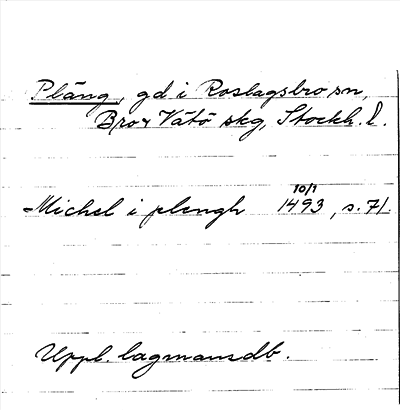 Pläng, gd i Roslagsbro sn,
Bro o Vätö skg, Stockh. l.
10/1
Michel i plengh 1493, s. 71.
Uppl. lagmansdb.